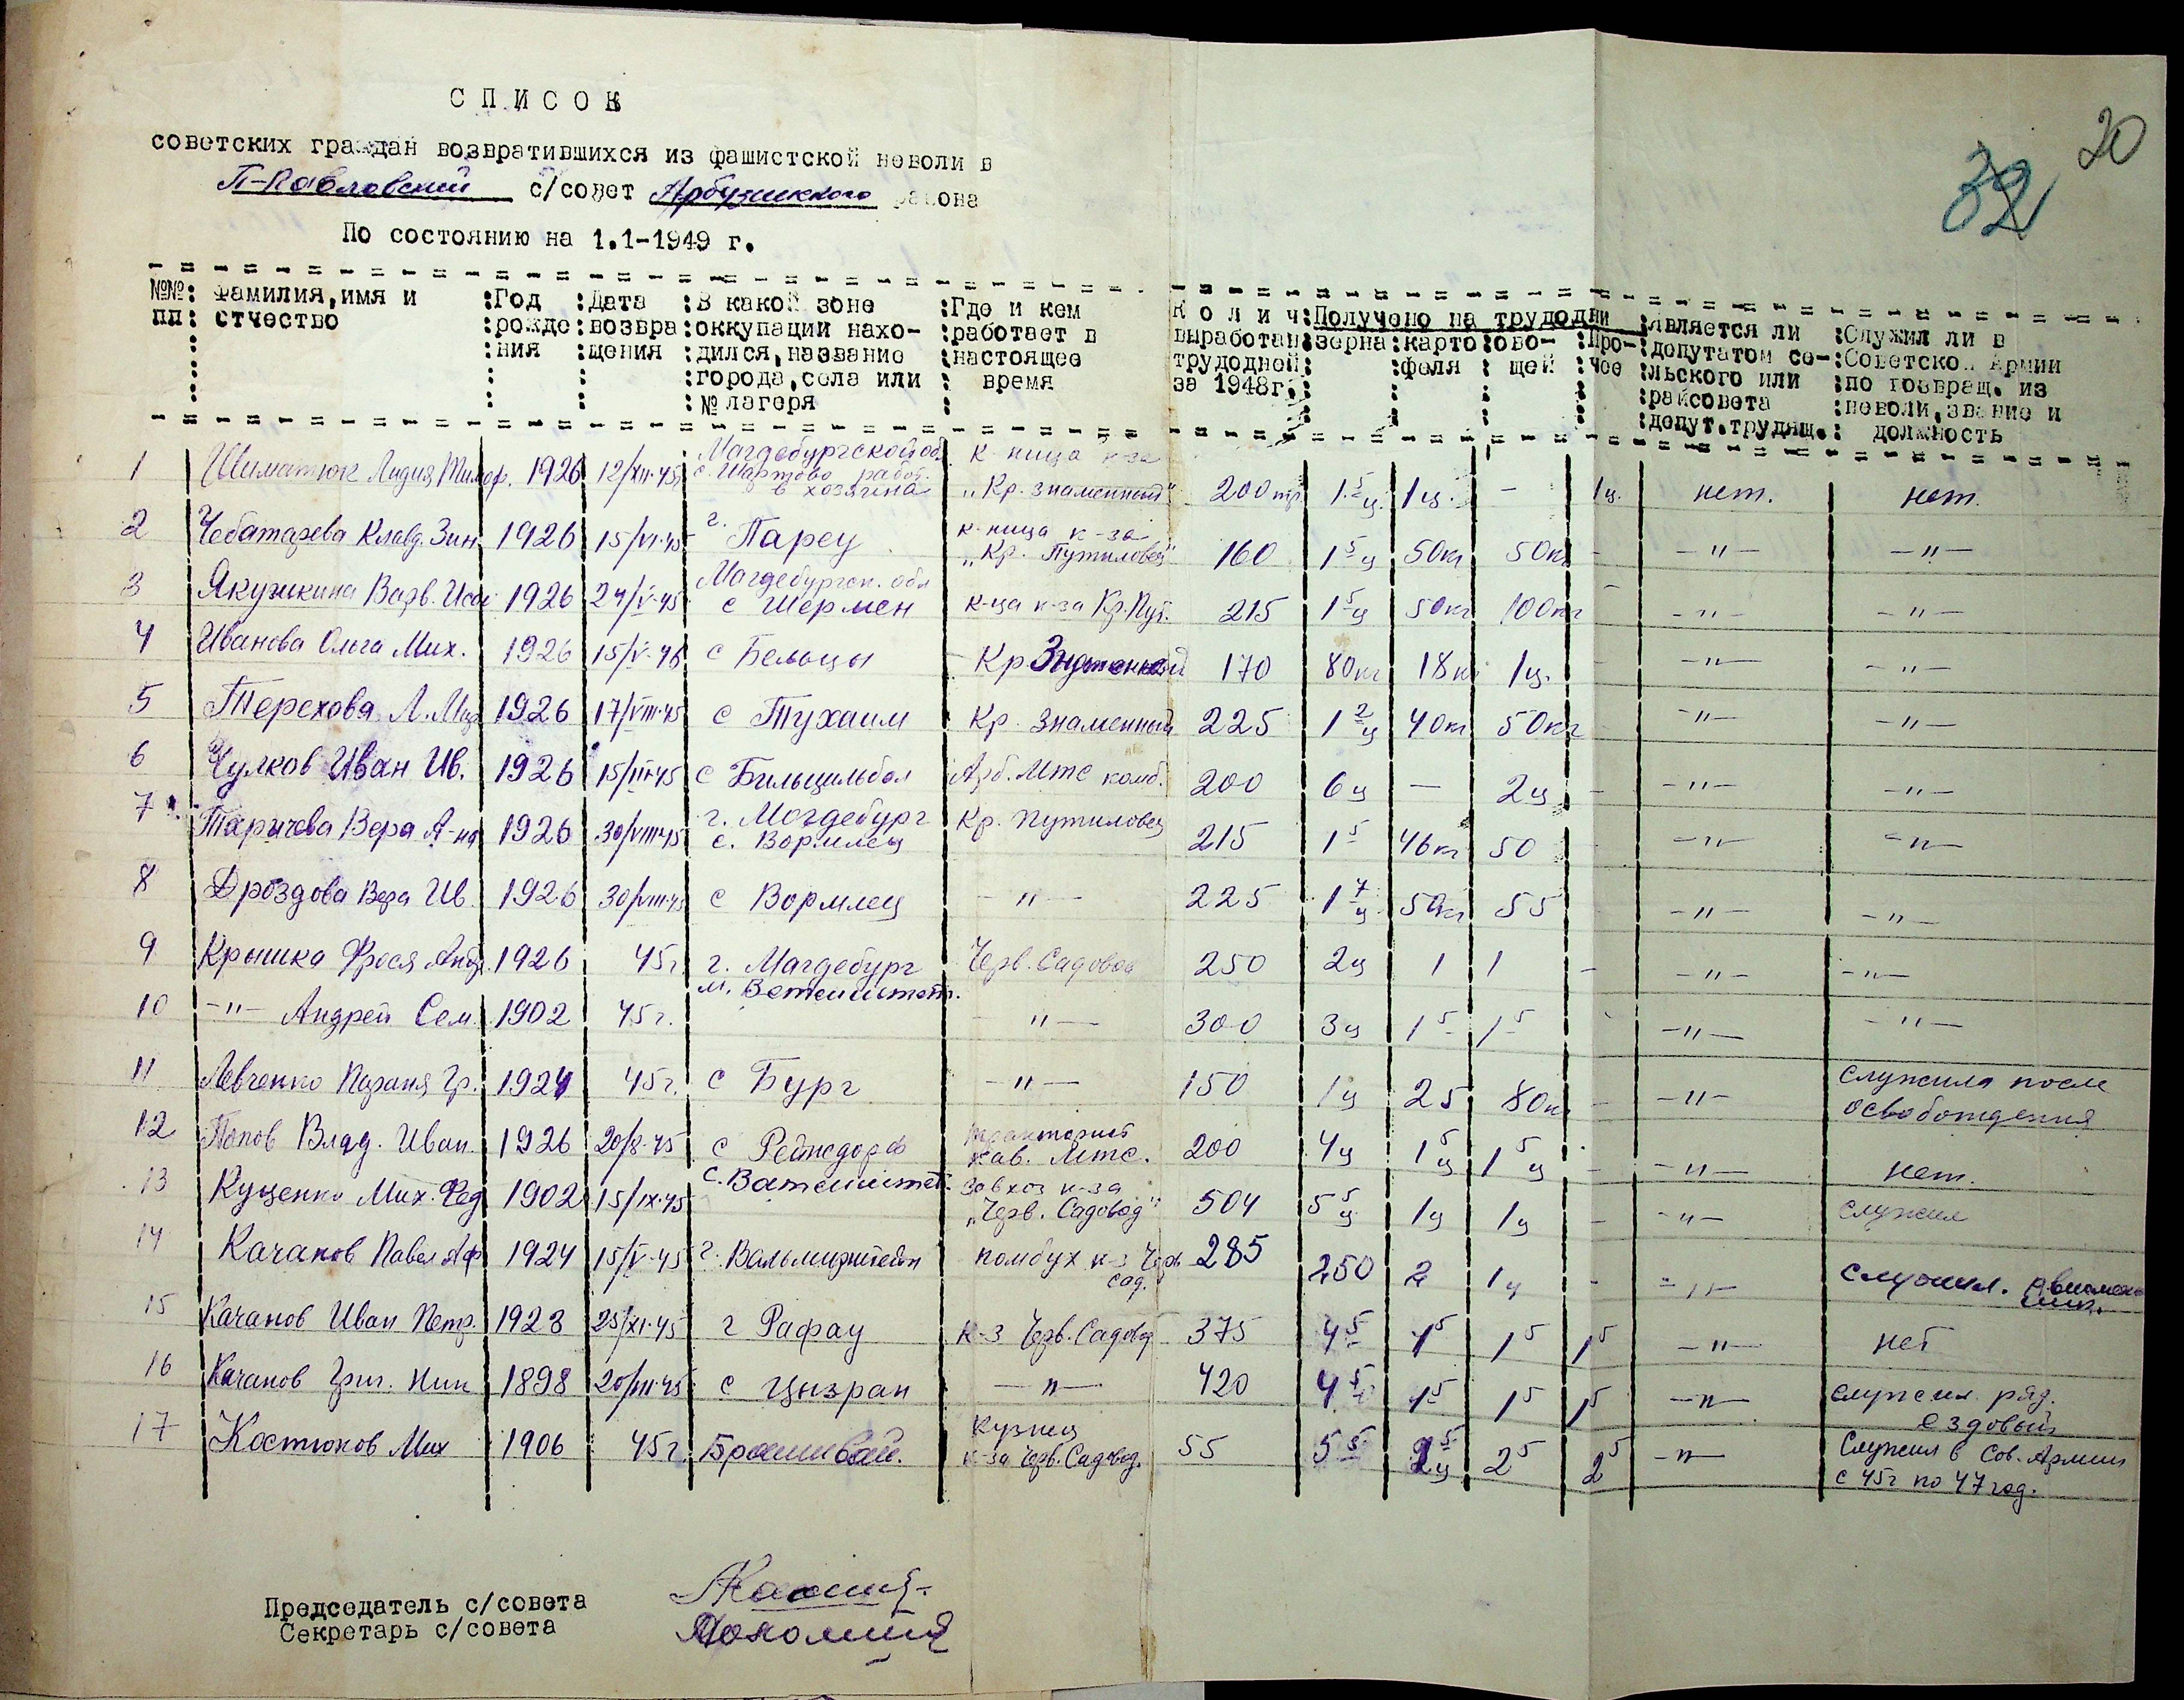 20
32
СПИСОК
советских граждан возвратившихся из фашистской неволи в
П-Павловский с/совет Арбузинкого района
По состоянию на 1.1-1949 г.
№№ пп : Фамилия, имя и отчество : Год рождения : Дата возвращения : В какой зоне оккупации находился, название города, села или № лагеря : Где и кем работает в настоящее время : Колич выработан трудодней за 1948г. : Получено на трудодни : зерна : картофеля : овощей : Прочее : Является ли депутатом сельского или райсовета депут. трудящ. : Служил ли в Советской Армии по возвращ. из неволи, звание и должность
1 Шиматюк Лидия Тимоф. 1926 12/XII-45 Магдебургской об с. Шартово работ. в хозяина к-ница к-за „Кр. знаменный" 200 тр 1.5 ц. 1 ц. - 1ц. нет. нет.
2 Чеботарева Клавд. Зин. 1926 15/VI-45 г. Парец к-ница к-за „Кр. Путиловец" 160 1 5 ц 50кг 50кг - -"- -"-
3 Якункина Варв. 1926 24/V-45 Магдебургск. обл с Шермен к-ца к-за Кр. Пут. 215 1 5 ц 50кг 100кг - -"- -"-
4 Иванова Ольга Мих. 1926 15/V-46 с Бельцы Кр Знаменный 170 80кг 18кг 1ц. -"- -"-
5 Терехова Л. 1926 17/VIII-45 с Тухаим Кр. Знаменный 225 1 2 ц 40кг 50кг -"- -"-
6 Чулков Иван Ив. 1926 15/ -45 с Бильцильбал Арб. Мтс комб. 200 6ц — 2ц - -"- -"-
7 Таричева Вера А-на 1926 30/VIII-45 г. Магдебург с. Вормлец Кр. Путиловец 215 1 5 46кг 50 - -"- -"-
8 Дроздова Вера Ив. 1926 30/VIII-45 с Вормлец -"- 225 1 7 ц. 50кг 55 - -"- -"-
9 Крышка Фрося Анд. 1926 45г. г. Магдебург м. Ветемштет. Черв. Садовод 250 2ц 1 1 - -"- -"-
10 -"- Андрей Сем. 1902 45г. -"- 300 3ц 1 5 1 5 -"- -"-
11 Левченко Параня Гр. 1924 45г. с Бург -"- 150 1ц 25 80кг - -"- служила после освобождения
12 Попов Влад. Иван. 1926 20/8-45 с Рейнсдорф тракторист Кав. Мтс. 200 4ц 1 5 ц 1 5 ц - -"- нет.
13 Куценко Мих. Фед 1902 15/IX-45 с. Ватемштет завхоз к-за „Черв. Садовод" 504 5 5 ц 1ц 1ц - -"- служил
14 Качанов Павел Аф 1924 15/V-45 г. Вальмирштедт помбух к-з Черв сад. 285 250 2 1ц - -"- служил.
15 Качанов Иван Петр. 1928 25/XI-45 г Рафау к-з Черв. Садовод 375 4 5 1 5 1 5 1 5 -"- нет
16 Качанов Григ. Ник 1898 20/ -45 с Цызран -"- 420 4 5 1 5 1 5 1 5 -"- служил ряд. ездовый
17 Костюков Мих 1906 45г. Брашивай. Кузнец к-за Черв. Садовод. 55 5 5 2 5 ц 2 5 2 5 -"- Служил в Сов. Армии с 45г по 47 год.
Председатель с/совета
Секретарь с/совета